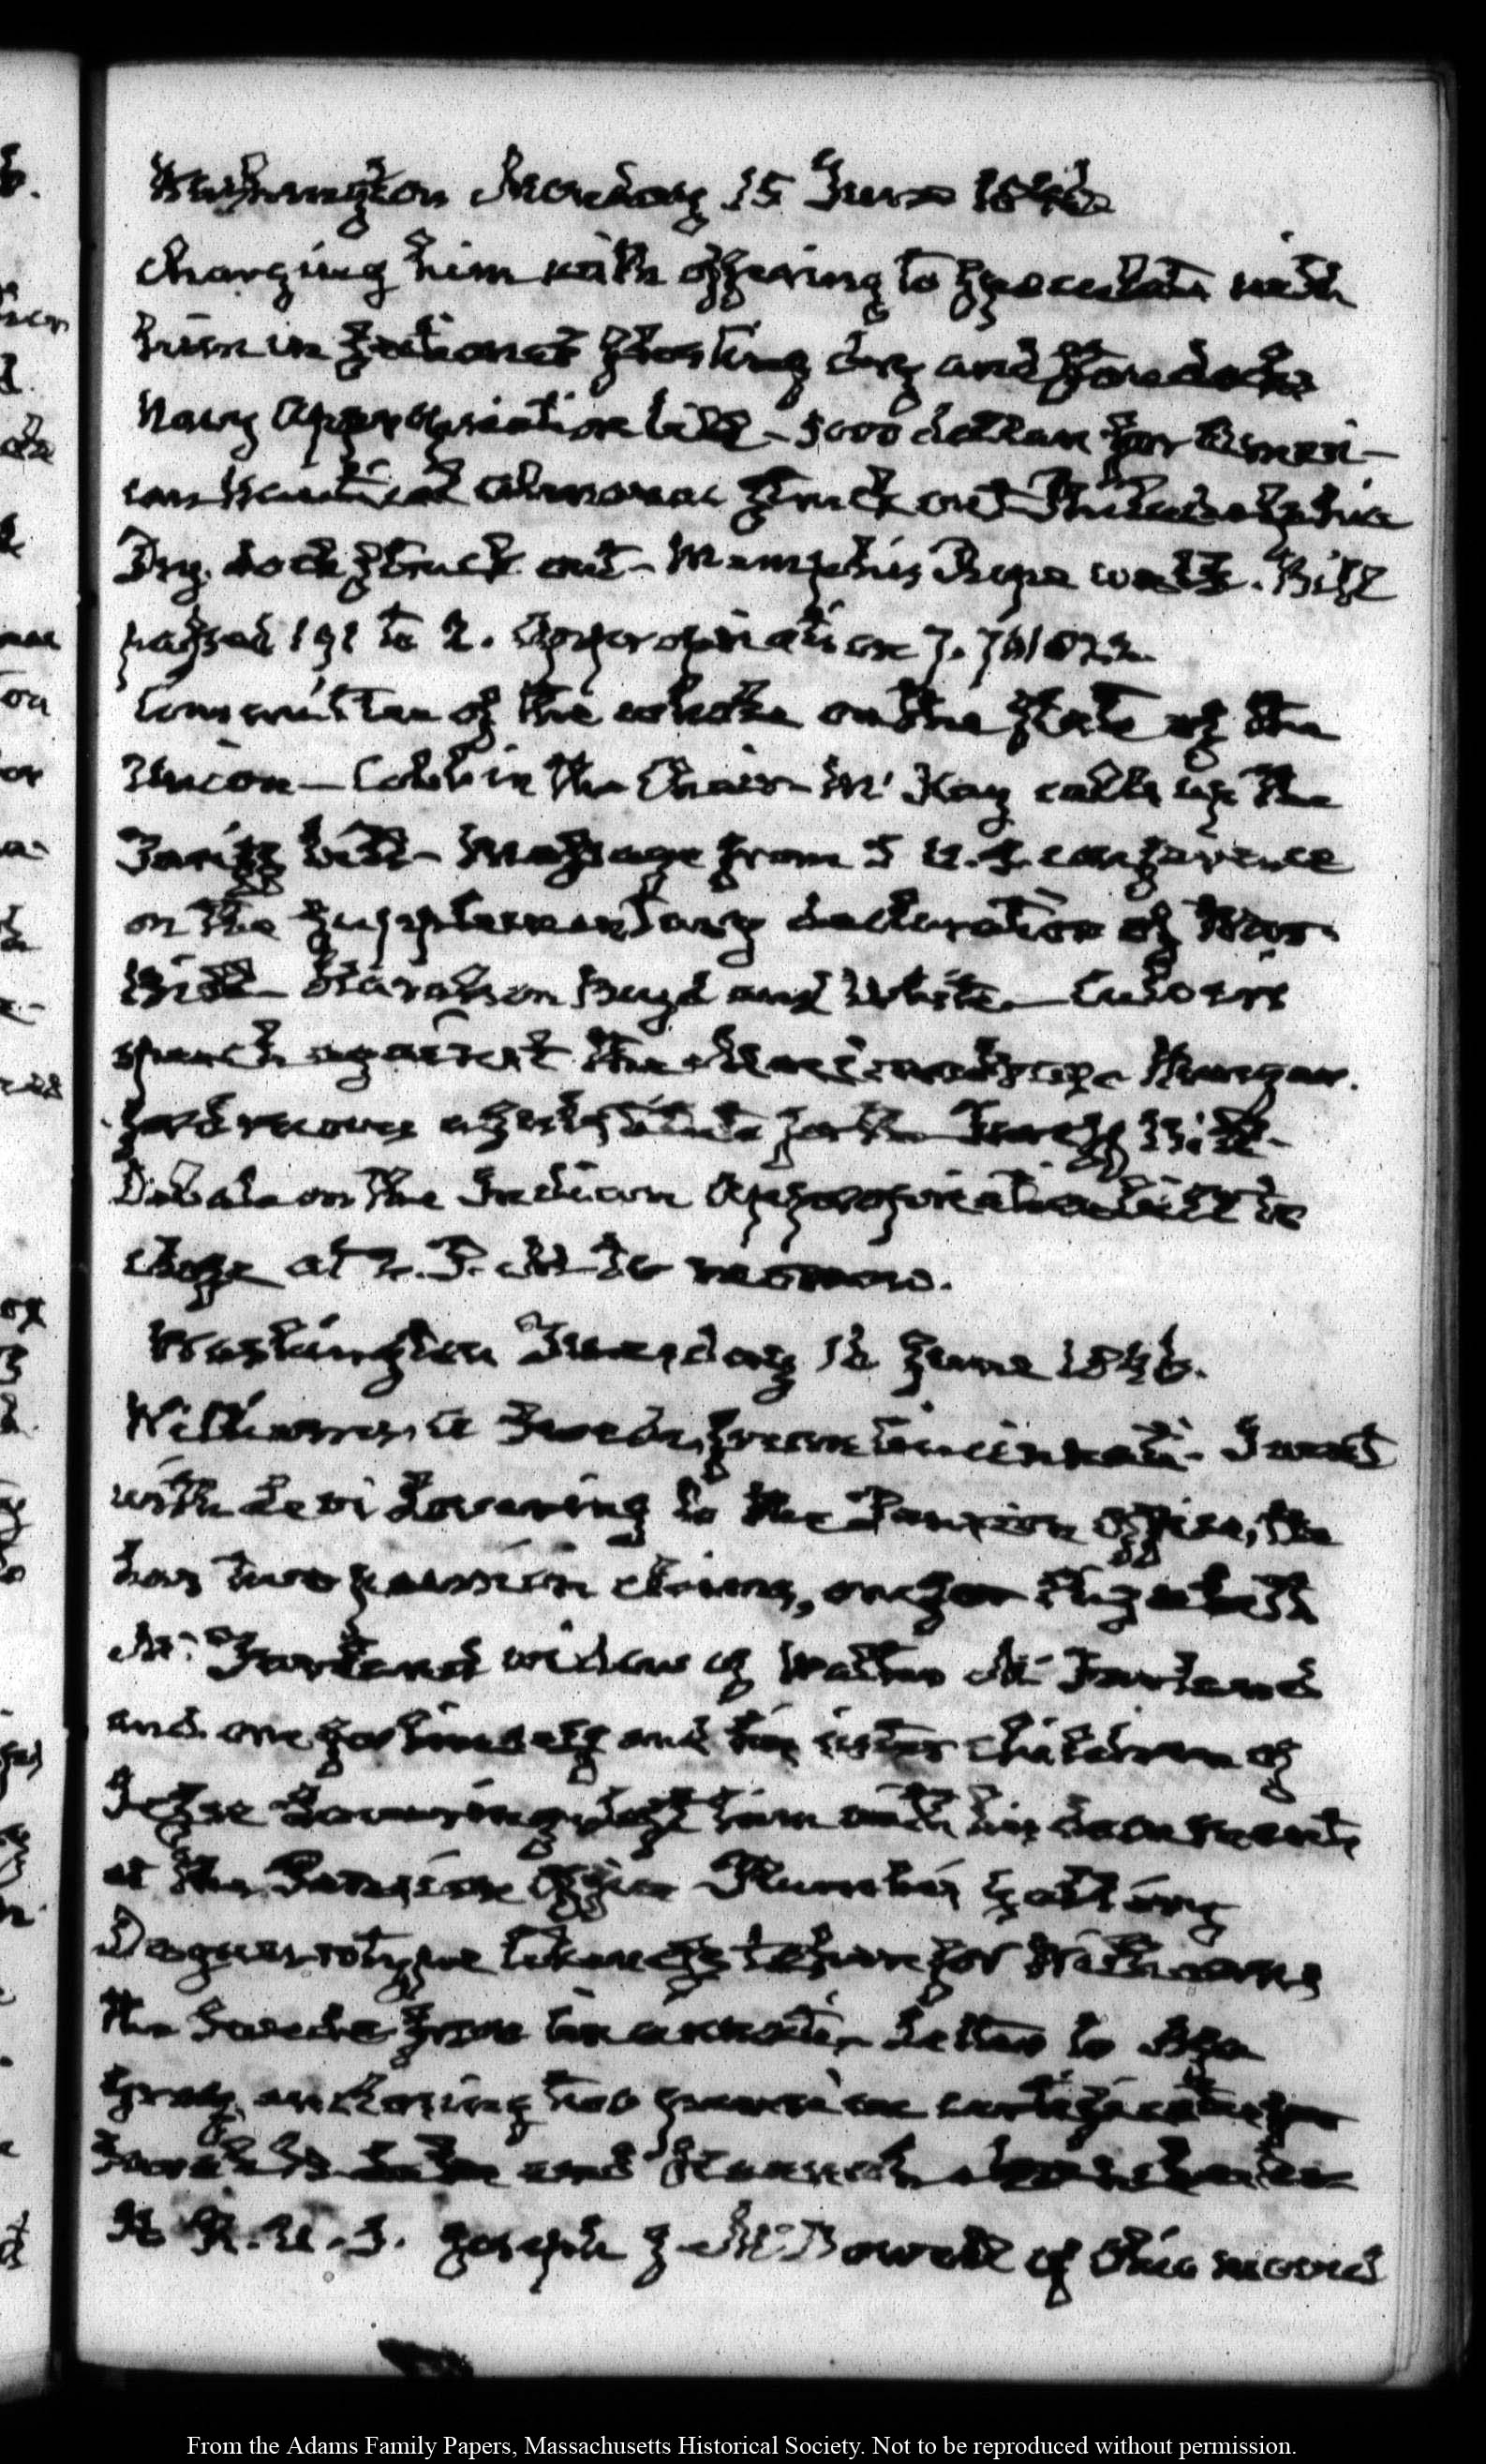 Washington Monday 15 June 1846
charging him with offering to speculate with
him in stone floating dry and stone docks
Navy Appropriation bill - 5000 dollars for Ameri-
can Nautical Almanac struck out - Philadelphia
Dry dock struck out - Memphis Rope walk. Bill
passed 191 to 2. Appropriation 7.
Committee of the whole on the State of the
Union - Cobb in the Chair - Mc Kay calls up the
Tariff bill - Message from S U.S. conference
on the supplementary declaration of War
Bill - Haralson Boyd and White -
speech against the - Hungar-
ford moves a substitute for the Tariff Bill -
Debate on the Indian Appropriation bill to
close at 2. P. M. to morrow.
Washington Tuesday 16 June 1846.
Williams, a Swede, from Cincinnati. I went
with Levi Lovering to the Pension Office, He
has two pension claims, one for Elizabeth
Mc Farland widow of Walter Mc Farland
and one for himself and his sister children of
Jesse Lovering, left him with his documents
at the Pension Office Plumbe's gallery
Daguerrotype likeness taken for Williams
the Swede from Cincinnati. Letter to
enclosing two pension certificates for
and Hannah
H. R. U. S. Joseph J. Mc Dowell of Ohio moved
From the Adams Family Papers, Massachusetts Historical Society. Not to be reproduced without permission.